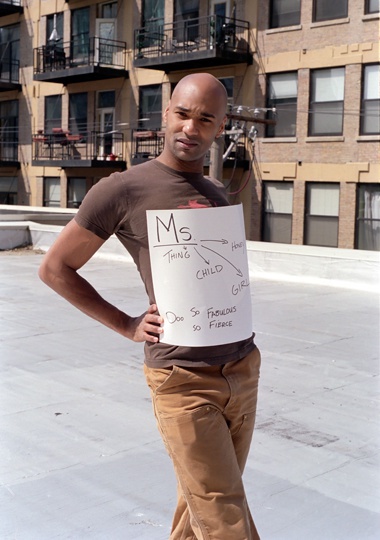 Ms
THING
CHILD
GIRL
DOO SO FABULOUS
SO FIERCE